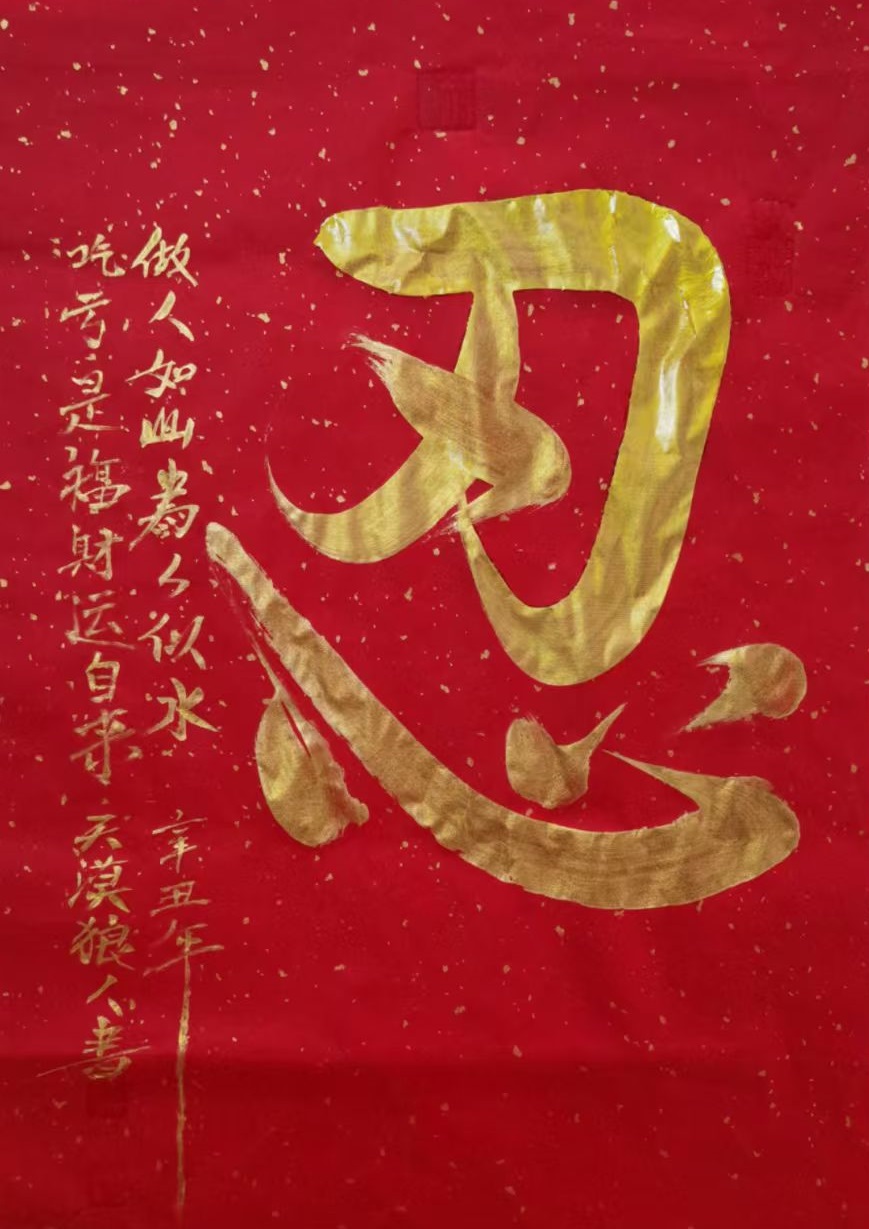 忍
做人如山為人似水 辛丑年
吃亏是福財运自来 天漠狼人書